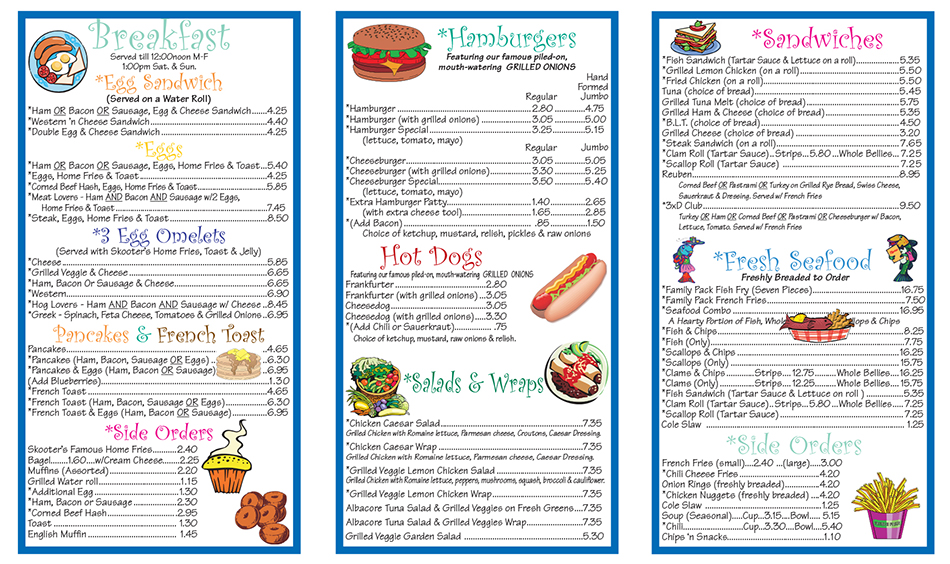 Breakfast
Served till 12:00noon M-F
1:00pm Sat. & Sun.
*Egg Sandwich
(Served on a Water Roll)
*Ham OR Bacon OR Sausage, Egg & Cheese Sandwich......4.25
*Western 'n Cheese Sandwich......4.40
*Double Egg & Cheese Sandwich......4.25
*Eggs
*Ham OR Bacon OR Sausage, Eggs, Home Fries & Toast...5.40
*Eggs, Home Fries & Toast......4.25
*Corned Beef Hash, Eggs, Home Fries & Toast......5.85
*Meat Lovers - Ham AND Bacon AND Sausage w/2 Eggs,
Home Fries & Toast......7.45
*Steak, Eggs, Home Fries & Toast......8.50
*3 Egg Omelets
(Served with Skooter's Home Fries, Toast & Jelly)
*Cheese......5.85
*Grilled Veggie & Cheese......6.65
*Ham, Bacon Or Sausage & Cheese......6.65
*Western......6.90
*Hog Lovers - Ham AND Bacon AND Sausage w/ Cheese..8.45
*Greek - Spinach, Feta Cheese, Tomatoes & Grilled Onions..6.95
Pancakes & French Toast
Pancakes......4.65
*Pancakes (Ham, Bacon, Sausage OR Eggs)......6.30
*Pancakes & Eggs (Ham, Bacon OR Sausage)......6.95
(Add Blueberries)......1.30
*French Toast......4.65
*French Toast (Ham, Bacon, Sausage OR Eggs)......6.30
*French Toast & Eggs (Ham, Bacon OR Sausage)......6.95
*Side Orders
Skooter's Famous Home Fries......2.40
Bagel......1.60....w/Cream Cheese......2.25
Muffins (Assorted)......2.20
Grilled Water roll......1.15
*Additional Egg......1.30
*Ham, Bacon or Sausage......2.30
*Corned Beef Hash......2.95
Toast......1.30
English Muffin......1.45
*Hamburgers
Featuring our famous piled-on,
mouth-watering GRILLED ONIONS
Hand
Formed
Regular Jumbo
*Hamburger......2.80......4.75
*Hamburger (with grilled onions)......3.05......5.00
*Hamburger Special......3.25......5.15
(lettuce, tomato, mayo)
Regular Jumbo
*Cheeseburger......3.05......5.05
*Cheeseburger (with grilled onions)......3.30......5.25
*Cheeseburger Special......3.50......5.40
(lettuce, tomato, mayo)
*Extra Hamburger Patty......1.40......2.65
(with extra cheese too!)......1.65......2.85
*(Add Bacon)......85......1.50
Choice of ketchup, mustard, relish, pickles & raw onions
Hot Dogs
Featuring our famous piled-on, mouth-watering GRILLED ONIONS
Frankfurter......2.80
Frankfurter (with grilled onions)...3.05
Cheesedog......3.05
Cheesedog (with grilled onions)......3.30
*(Add Chili or Sauerkraut)......75
Choice of ketchup, mustard, raw onions & relish.
*Salads & Wraps
*Chicken Caesar Salad......7.35
Grilled Chicken with Romaine lettuce, Parmesan cheese, Croutons, Caesar Dressing.
*Chicken Caesar Wrap......7.35
Grilled Chicken with Romaine lettuce, Parmesean cheese, Caesar Dressing.
*Grilled Veggie Lemon Chicken Salad......7.35
Grilled Chicken with Romaine lettuce, peppers, mushrooms, squash, broccoli & cauliflower.
*Grilled Veggie Lemon Chicken Wrap......7.35
Albacore Tuna Salad & Grilled Veggies on Fresh Greens....7.35
Albacore Tuna Salad & Grilled Veggies Wrap......7.35
Grilled Veggie Garden Salad......5.30
*Sandwiches
*Fish Sandwich (Tartar Sauce & Lettuce on a roll)......5.35
*Grilled Lemon Chicken (on a roll)......5.50
*Fried Chicken (on a roll)......5.50
Tuna (choice of bread)......5.45
Grilled Tuna Melt (choice of bread)......5.75
Grilled Ham & Cheese (choice of bread)......5.35
*B.L.T. (choice of bread)......4.50
Grilled Cheese (choice of bread)......3.20
*Steak Sandwich (on a roll)......7.65
*Clam Roll (Tartar Sauce)..Strips...5.80 ...Whole Bellies... 7.25
*Scallop Roll (Tartar Sauce)......7.25
Reuben......8.95
Corned Beef OR Pastrami OR Turkey on Grilled Rye Bread, Swiss Cheese,
Sauerkraut & Dressing. Served w/ French Fries
*3xD Club......9.50
Turkey OR Ham OR Corned Beef OR Pastrami OR Cheeseburger w/ Bacon,
Lettuce, Tomato. Served w/ French Fries
*Fresh Seafood
Freshly Breaded to Order
*Family Pack Fish Fry (Seven Pieces)......16.75
*Family Pack French Fries......7.50
*Seafood Combo......16.95
A Hearty Portion of Fish, Whol lops & Chips
*Fish & Chips......8.25
*Fish (Only)......7.75
*Scallops & Chips......16.25
*Scallops (Only)......15.75
*Clams & Chips......Strips... 12.75......Whole Bellies... 16.25
*Clams (Only)......Strips... 12.25......Whole Bellies... 15.75
*Fish Sandwich (Tartar Sauce & Lettuce on roll )......5.35
*Clam Roll (Tartar Sauce)..Strips...5.80 ...Whole Bellies.... 7.25
*Scallop Roll (Tartar Sauce)......7.25
Cole Slaw......1.25
*Side Orders
French Fries (small)....2.40 ...(large).....3.00
*Chili Cheese Fries......4.20
Onion Rings (freshly breaded)......4.20
*Chicken Nuggets (freshly breaded)....4.20
Cole Slaw......1.25
Soup (Seasonal).....Cup...3.15....Bowl..... 5.15
*Chili......Cup...3.30....Bowl.....5.40
Chips 'n Snacks......1.10